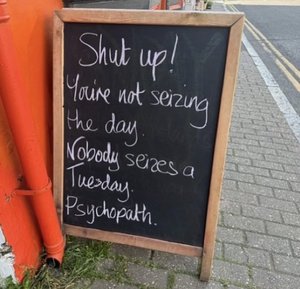 Shut up!
You're not seizing
the day.
Nobody seizes a
Tuesday.
Psychopath.